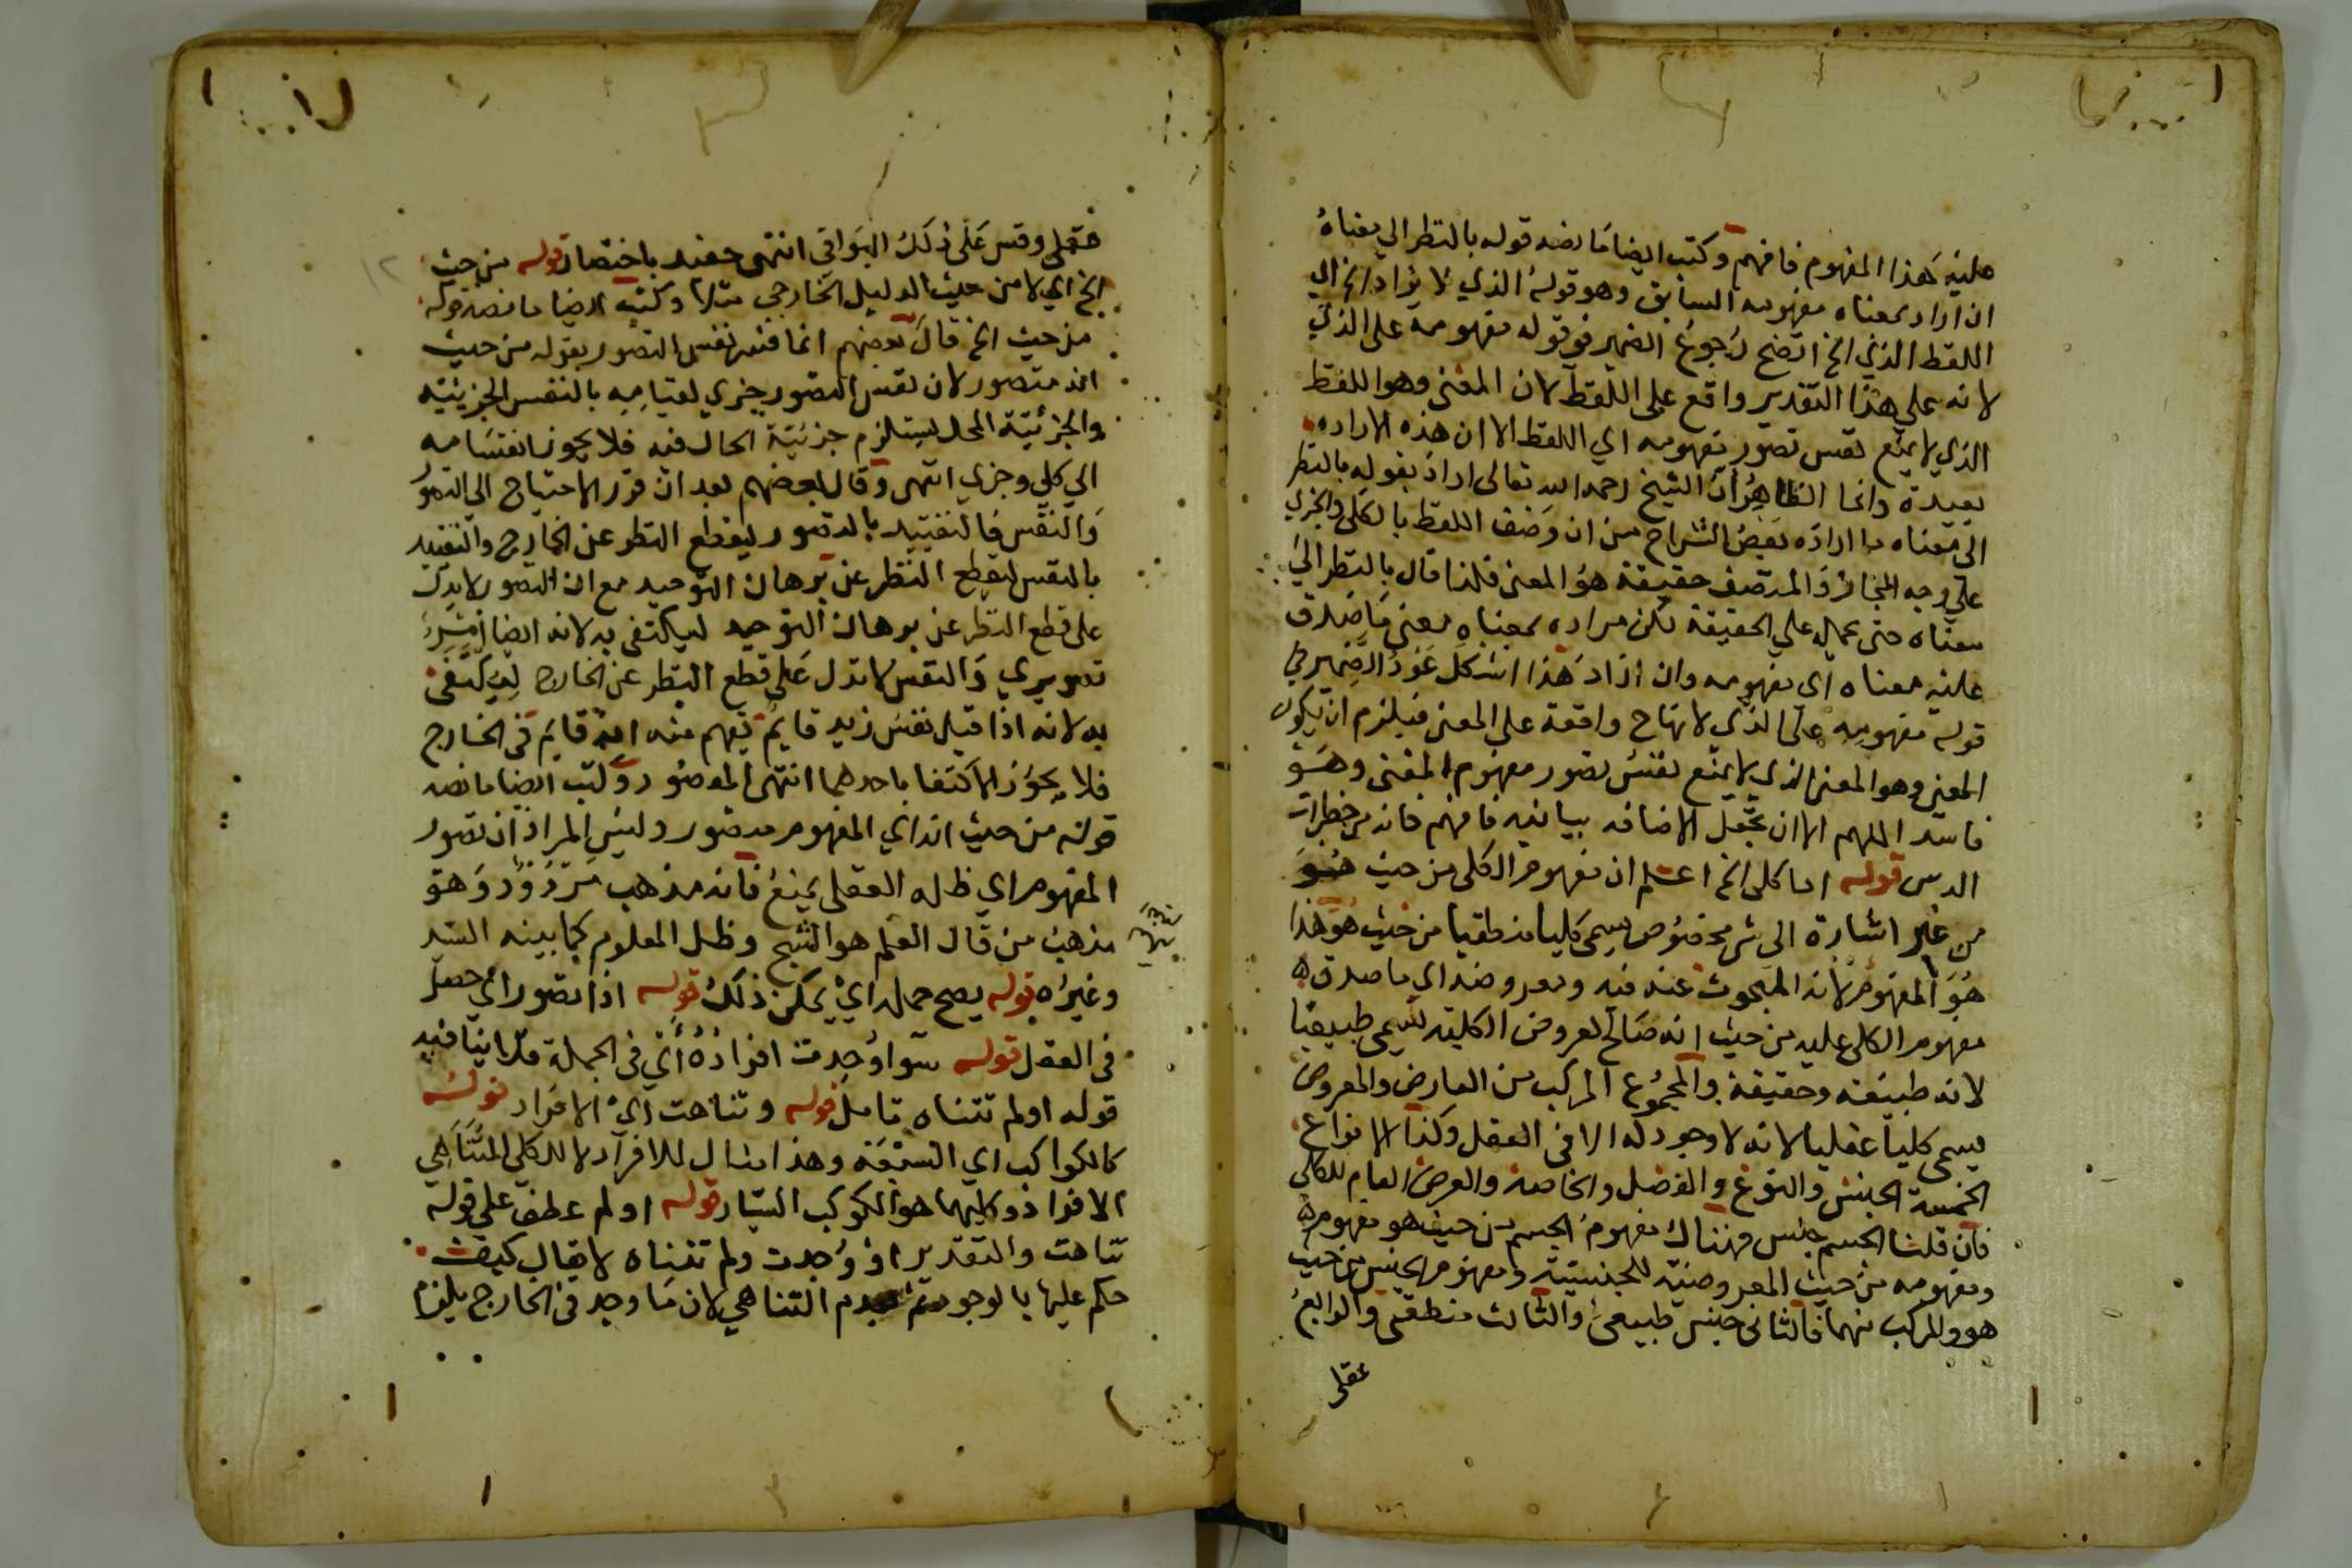 عليه هذا المفهوم فافهم وكتب ايضا ما نصه قوله بالنظر الي معناه
ان اراد بمعناه مفهومه السابق وهو قوله الذي لا يراد الخ الي
اللفظ الذي الخ اتضح رجوع الضمير في قوله مفهومه على الذي
لانه علي هذا التقدير واقع على اللفظ لان المعنى وهو اللفظ
الذي لا يمنع نفس تصور مفهومه اي اللفظ الا ان هذه الارادة
بعيدة وانما الظاهر ان الشيخ رحمه الله تعالى اراد بقوله بالنظر
الى معناه ما اراده بعض الشراح من ان وصف اللفظ بالكلي والجزي
علي وجه المجاز والمتصف حقيقة هو المعنى فلذا قال بالنظر الي
معناه حتى يحمل علي الحقيقة لكن مراده بمعناه معنى ما صدق
عليه معناه اي مفهومه وان اراد هذا اشكل عود الضمير في
قوله مفهومه على الذي لانها ح واقعة على المعنى فيلزم ان يكون
المعنى وهو المعنى الذي لا يمنع نفس تصور مفهوم المعنى وهو
فاسد اللهم الا ان تجعل الاضافه بيانيه فافهم فانه من خطرات
الدرس قوله اما كلى الخ اعلم ان مفهوم الكلى من حيث هو
من غير اشارة الى شي مخصوص يسمى كليا منطقيا من حيث هو هذا
هو المفهوم لانه المبحوث عنه فيه ومعروضه اي ما صدق
مفهوم الكلى عليه من حيث انه صالح لعروض الكلية يسمى طبيعيا
لانه طبيعة وحقيقة والمجموع المركب من العارض والمعروض
يسمى كليا عقليا لانه لا وجود له الا في العقل وكذا الانواع
الخمسة الجنس والنوع والفصل والخاصة والعرض العام للكلى
فان قلنا الجسم جنس فهناك مفهوم الجسم من حيث هو مفهوم
ومفهومه من حيث المعروضية للجنسية ومفهوم الجنس من حيث
هو والمركب منهما فالثانى جنس طبيعى والثالث منطقى والرابع
عقلى
عقلى وقس على ذلك البواقي انتهى حفيد باختصار قوله من حيث
الخ اي لا من حيث الدليل الخارجي مثلا وكتب ايضا ما نصه قوله
من حيث الخ قال بعضهم انما فسر نفس التصور بقوله من حيث
انه متصور لان نفس التصور جزي لقيامه بالنفس الجزئية
والجزئية المحل يستلزم جزئية الحال فيه فلا يجوز انقسامه
الي كلي وجزي انتهى وقال بعضهم بعد ان قرر الاحتياج الى التصور
والنفس فالتقييد بالتصور ليقطع النظر عن الخارج والتقييد
بالنفس ليقطع النظر عن برهان التوحيد مع ان التصور لا يدل
على قطع النظر عن برهان التوحيد ليكتفى به لانه ايضا
تصويري والنفس لا تدل على قطع النظر عن الخارج ليكتفى
به لانه اذا قيل نفس زيد قايم يفهم منه انه قايم في الخارج
فلا يجوز الاكتفا باحدهما انتهى المقصود وكتب ايضا ما نصه
قوله من حيث انه اي المفهوم متصور وليس المراد ان تصور
المفهوم اي ظله العقلى يمنع فانه مذهب مردود وهو
مذهب من قال العلم هو الشبح وظل المعلوم كما بينه السيد
وغيره قوله يصح حمله اي يمكن ذلك قوله اذا تصور اي حصل
فى العقل قوله سوا وجدت افراده اي فى الجملة فلا ينافيه
قوله اولم تتناه تامل قوله وتناهت اي الافراد قوله
كالكواكب اي السبعة وهذا مثال للافراد لا للكلي المتناهي
الافراد وكليها هو الكوكب السيار قوله اولم عطف علي قوله
تناهت والتقدير او وجدت ولم تتناه لا يقال كيف
حكم عليها بالوجود ثم بعدم التناهي لان ما وجد في الخارج يلزم